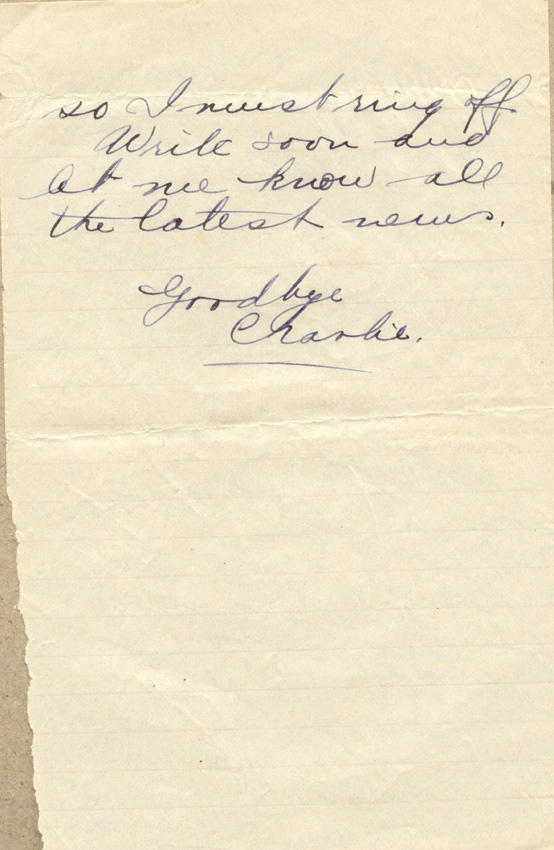 so I must ring off
Write soon and
let me know all
the latest news.
Goodbye
Charlie.